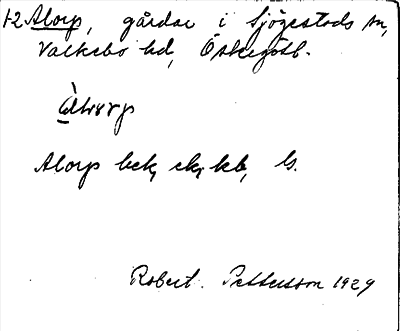 1-2 Alorp, gårdar i Sjögestads sn,
Valkebo hd, Östergötl.
Alorp bek, ek, kb, ls.
Robert. Pettersson 1929